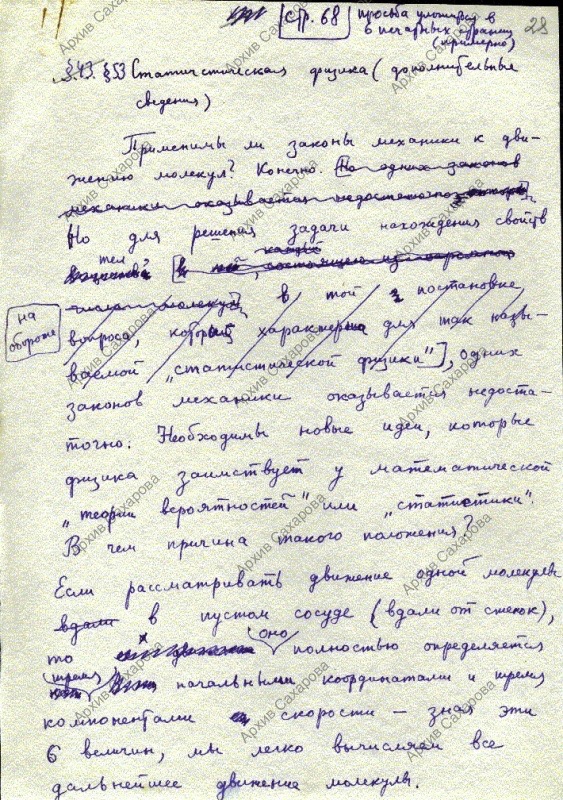 стр. 68
просьба уложиться в
6 печатных страниц
(примерно)
28
§43. §53 Статистическая физика (дополнительные
сведения)
Применимы ли законы механики к дви-
жению молекул? Конечно. Но одних законов
механики оказывается недостаточно
Но для решения задачи нахождения свойств
тел
каждый
в ней, состоящего из
молекул в той постановке
на
обороте
вопроса, который характерна для так назы-
ваемой „статистической физики"], одних
законов механики оказывается недоста-
точно. Необходимы новые идеи, которые
физика заимствует у математической
„теории вероятностей" или „статистики".
В чем причина такого положения?
Если рассматривать движение одной молекулы
вдали в пустом сосуде (вдали от стенок),
то оно полностью определяется
(тремя) начальными координатами и тремя
компонентами скорости — зная эти
6 величин, мы легко вычисляем все
дальнейшее движение молекулы.
Архив Сахарова